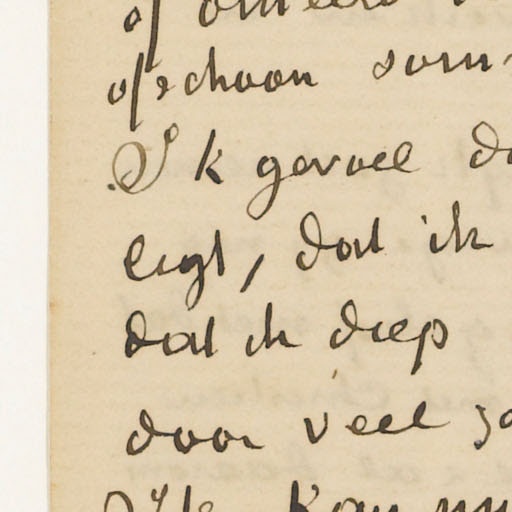 of
ofschoon som
Ik gevoel da
legt, dat ik
dat ik diep
door veel
Ik kan